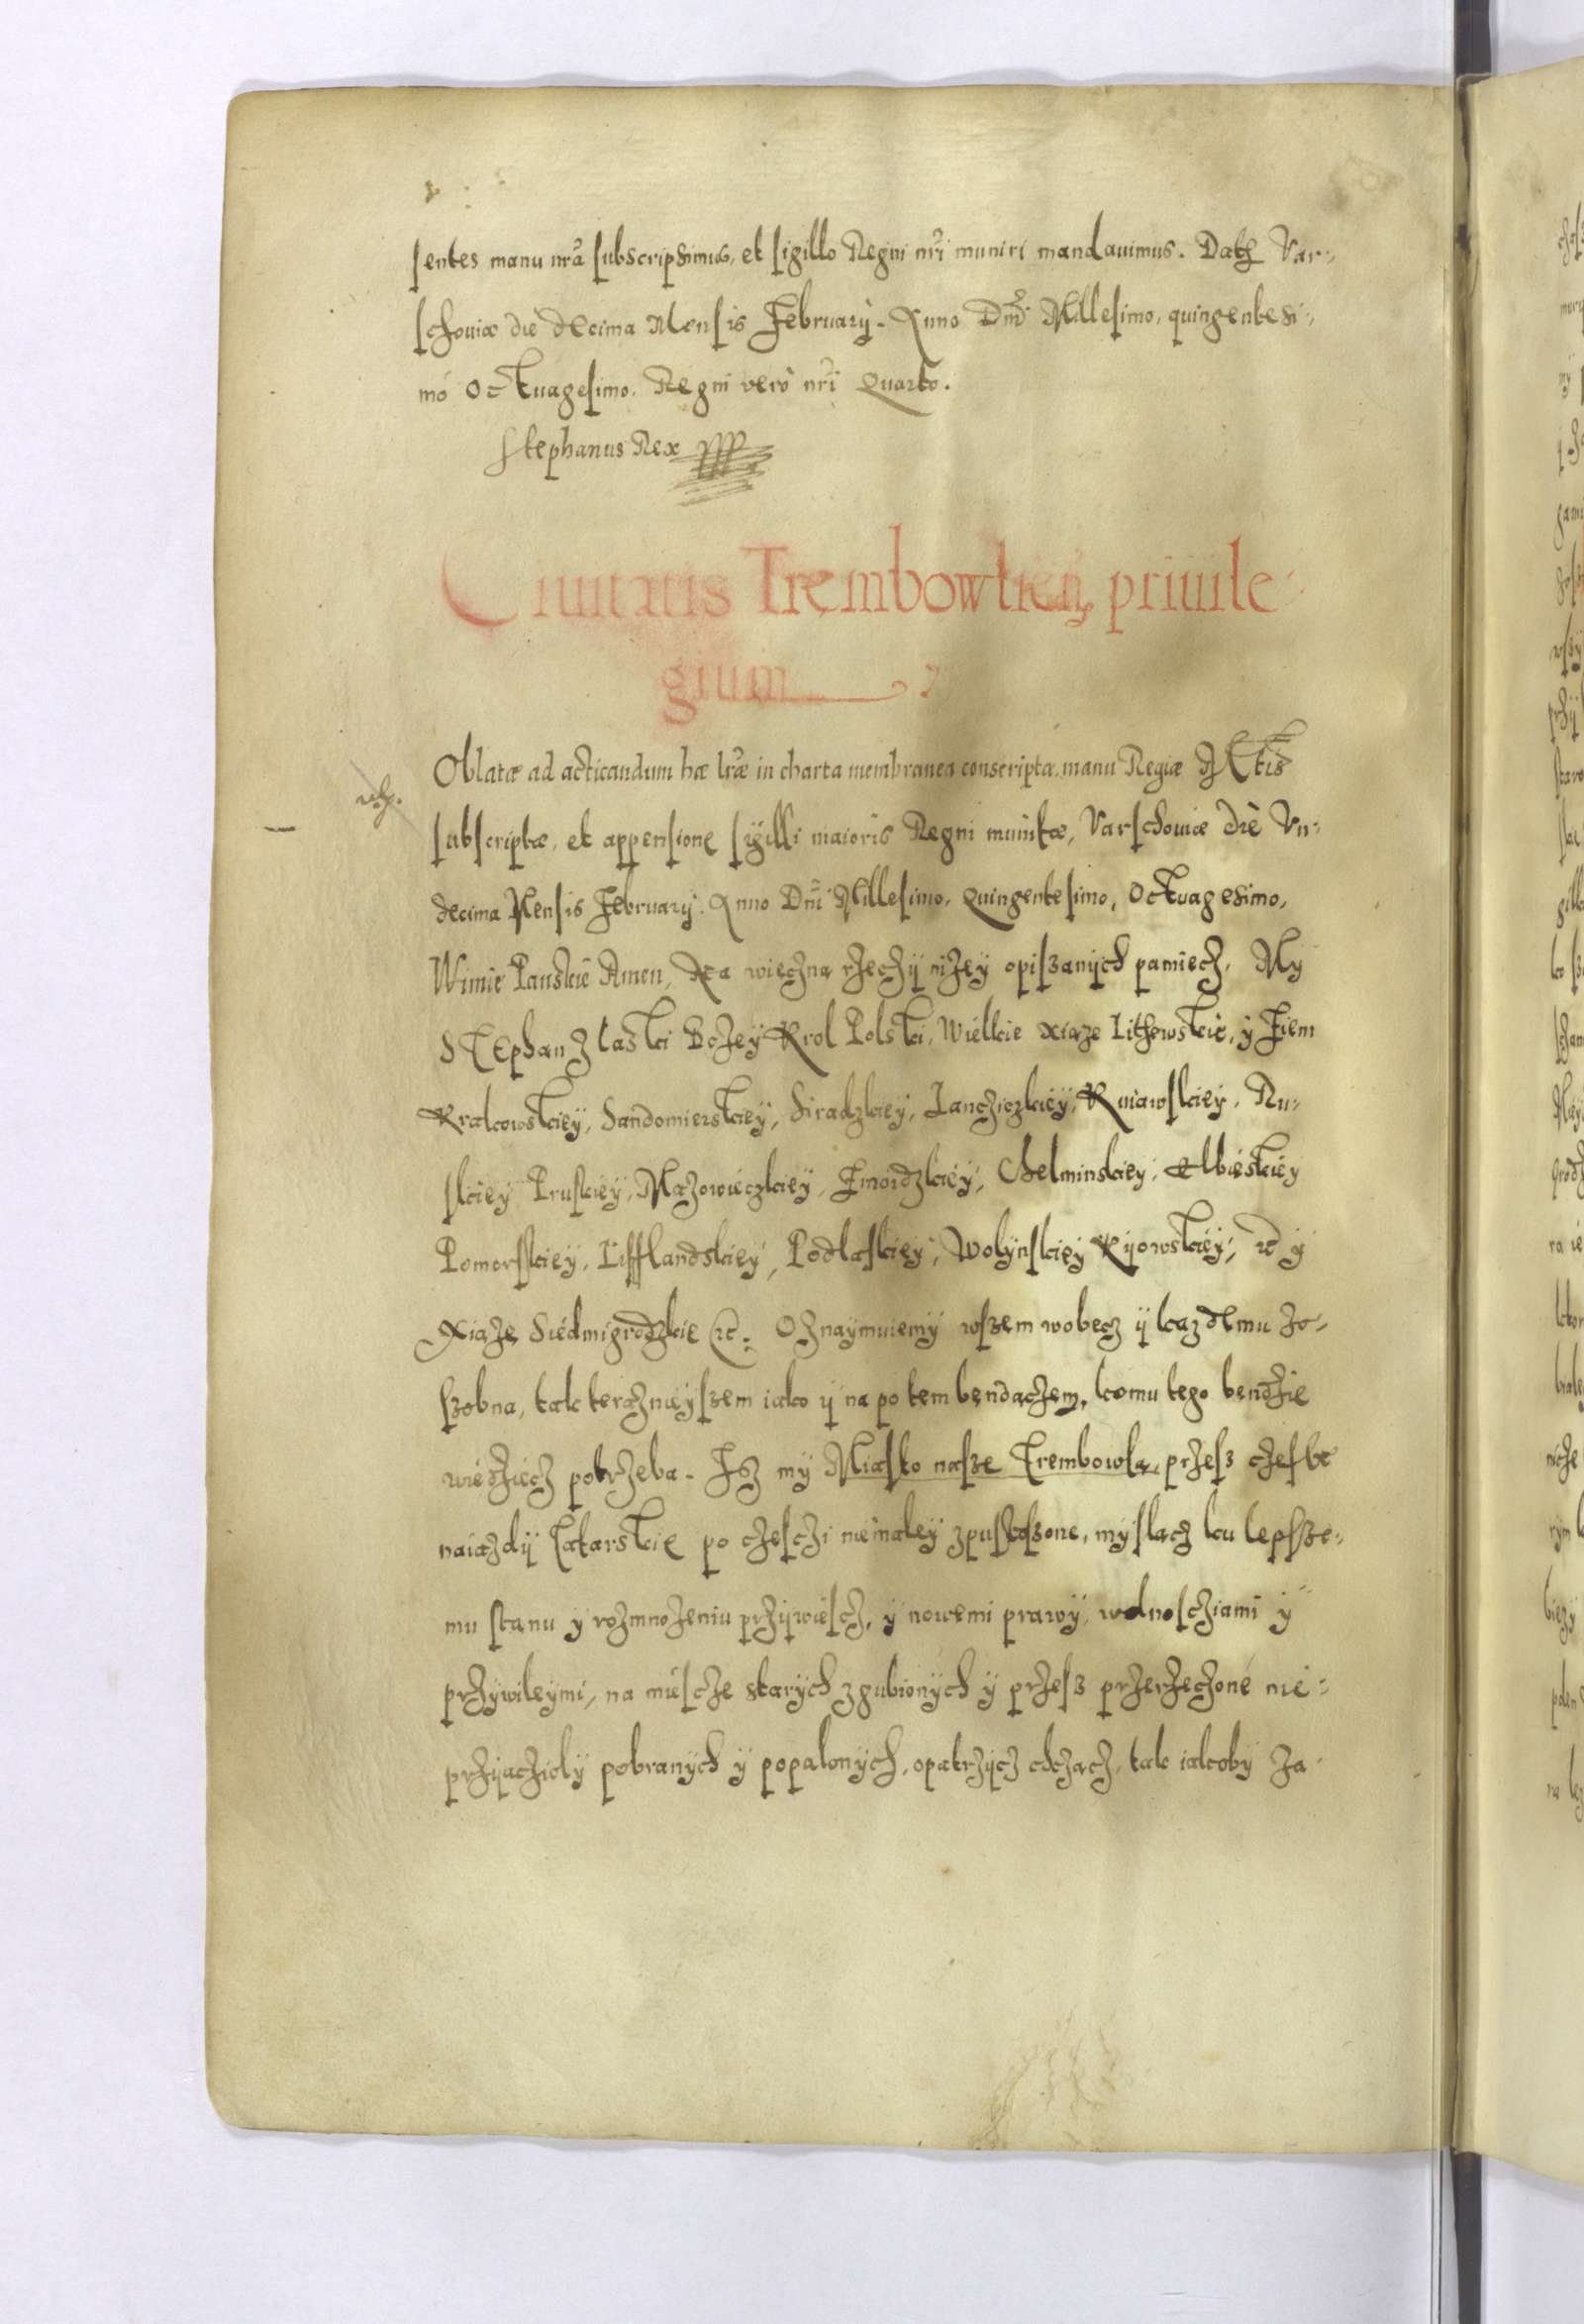 sentes manu nr̃a subscripsimus, et sigillo Regni nr̃i muniri mandauimus. Dat. Var-
schouiæ die decima Mensis February. Anno Dnĩ Millesimo, quingentesi-
mó Octuagesimo. Regni verò nr̃i Quarto.
Stephanus Rex
Ciuitatis Trembowlień priuile
gium
Oblatæ ad acticandum hæ lr̃æ in charta membranea conscriptæ, manu Regiæ Mtis
subscriptæ, et appensione sigilli maioris Regni munitæ, Varschouiæ diè Vn-
decima Mensis February. Anno Dnĩ Millesimo, Quingentesimo, Octuagesimo,
Wimie Panskie Amen, Na wieczną rzeczÿ nizeÿ opiszanÿch pamiecz. My
Stephan Z laski Bozeÿ Krol Polski, Wielkie xiąze Lithewskie, ÿ Ziem
Krakowskieÿ, Sandomierskieÿ, Siradzkieÿ, Lancziczkieÿ, Kuiawskieÿ, Ru-
skieÿ Pruskieÿ, Mazowieczkieÿ, Zmoidzkieÿ, Chelminskieÿ, Elbieskieÿ
Pomorskieÿ, Lifflandskieÿ, Podlaskieÿ, Wolÿnskieÿ Kÿowskieÿ, etc ÿ
Xiąze Siedmigrodzkie etc. Oznaÿmuiemÿ wszem wobecz ÿ kazdemu zo-
szobna, tak terazneÿszem iako ÿ na potem bendączem, komu tego bendzie
wiedziecz potrzeba. Isz mÿ Miasto nasze Trembowla, przesz czeste
naiazdÿ Tatarskie po czesczi niemaleÿ zpustoszone, mÿslącz ku lepsze-
mu stanu ÿ rozmnozeniu przÿwiescz, ÿ nowemi prawÿ, wolnoscziami ÿ
przÿwileÿmi, na miescze starÿch zgubionÿch ÿ przesz przerzeczone nie-
przÿiacziolÿ pobranÿch ÿ popalonÿch, opatrzÿcz chcząc, tak iakobÿ za-